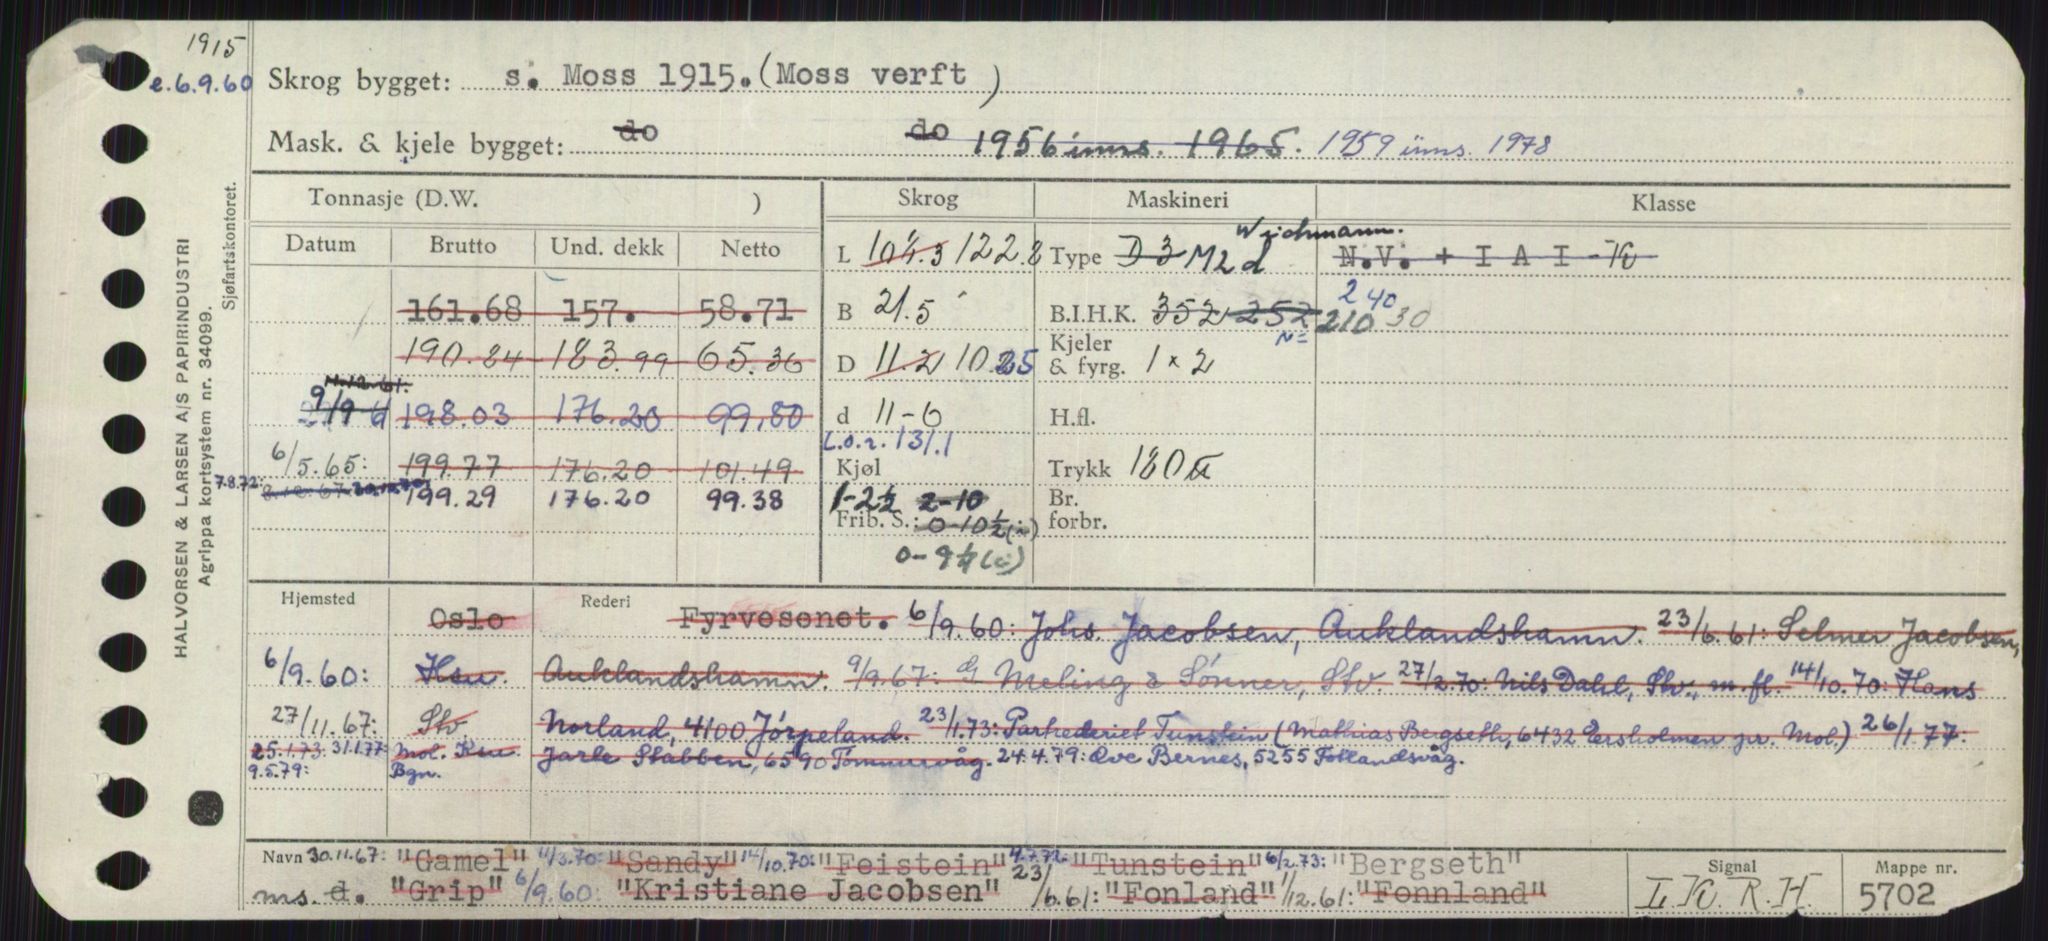 1915
e. 6.9.60
Skrog bygget: s. Moss 1915. (Moss verft )
Mask. & kjele bygget: do do 1956 inns. 1965. 1959 inns. 1978
HALVORSEN & LARSEN A/S PAPIRINDUSTRI
Agrippa kortsystem nr. 34099.
Sjøfartskontoret.
Tonnasje (D.W. ) Skrog Maskineri Klasse
Datum Brutto Und. dekk Netto
L 104.3 122.2 Type D 3 M2 d Wichmann. N.V. + I A I - K
161.68 157. 58.71
B 21.5 B.I.H.K. 352 252 210 240 30
190.84 183.99 65.36
D 11.2 10.25 Kjeler & fyrg. 1 × 2
9/9 198.03 176.20 99.80
d 11-6 H.fl.
L.o.r. 131.1
6/5.65: 199.77 176.20 101.49
Kjøl Trykk 180
7.8.72: 199.29 176.20 99.38
1-2½ 2-10 Br. forbr.
Frib. S.: 0-10½ (i)
0-9½ (i)
Hjemsted Rederi
Oslo Fyrvesenet. 6/9.60: Johs. Jacobsen, Auklandshamn. 23/6.61: Selmer Jacobsen,
6/9.60: Hsu. Auklandshamn. 9/9.67: G Meling & Sønner, Stv. 27/2.70: Nils Dahl, Stv., m.fl. 14/10.70: Hans
27/11.67: Stv. Norland, 4100 Jørpeland. 23/1.73: Partrederiet Tunstein (Mathias Bergseth, 6432 jr. Mol.) 26/1.77:
25.1.73: 31.1.77: Mol. Ksu. Jarle Stabben, 6590 Tømmervåg. 24.4.79: Ove Bernes, 5255 Follandsvåg.
9.5.79: Bgn.
Navn 30.11.67: "Gamel" 11/3.70: "Sandy" 14/10.70: "Feistein" 4.7.72: "Tunstein" 6/2.73: "Bergseth"
ms. d. "Grip" 6/9.60: "Kristiane Jacobsen" 23/6.61: "Fonland" 1/12.61: "Fonnland"
Signal L.K.R.H.
Mappe nr. 5702